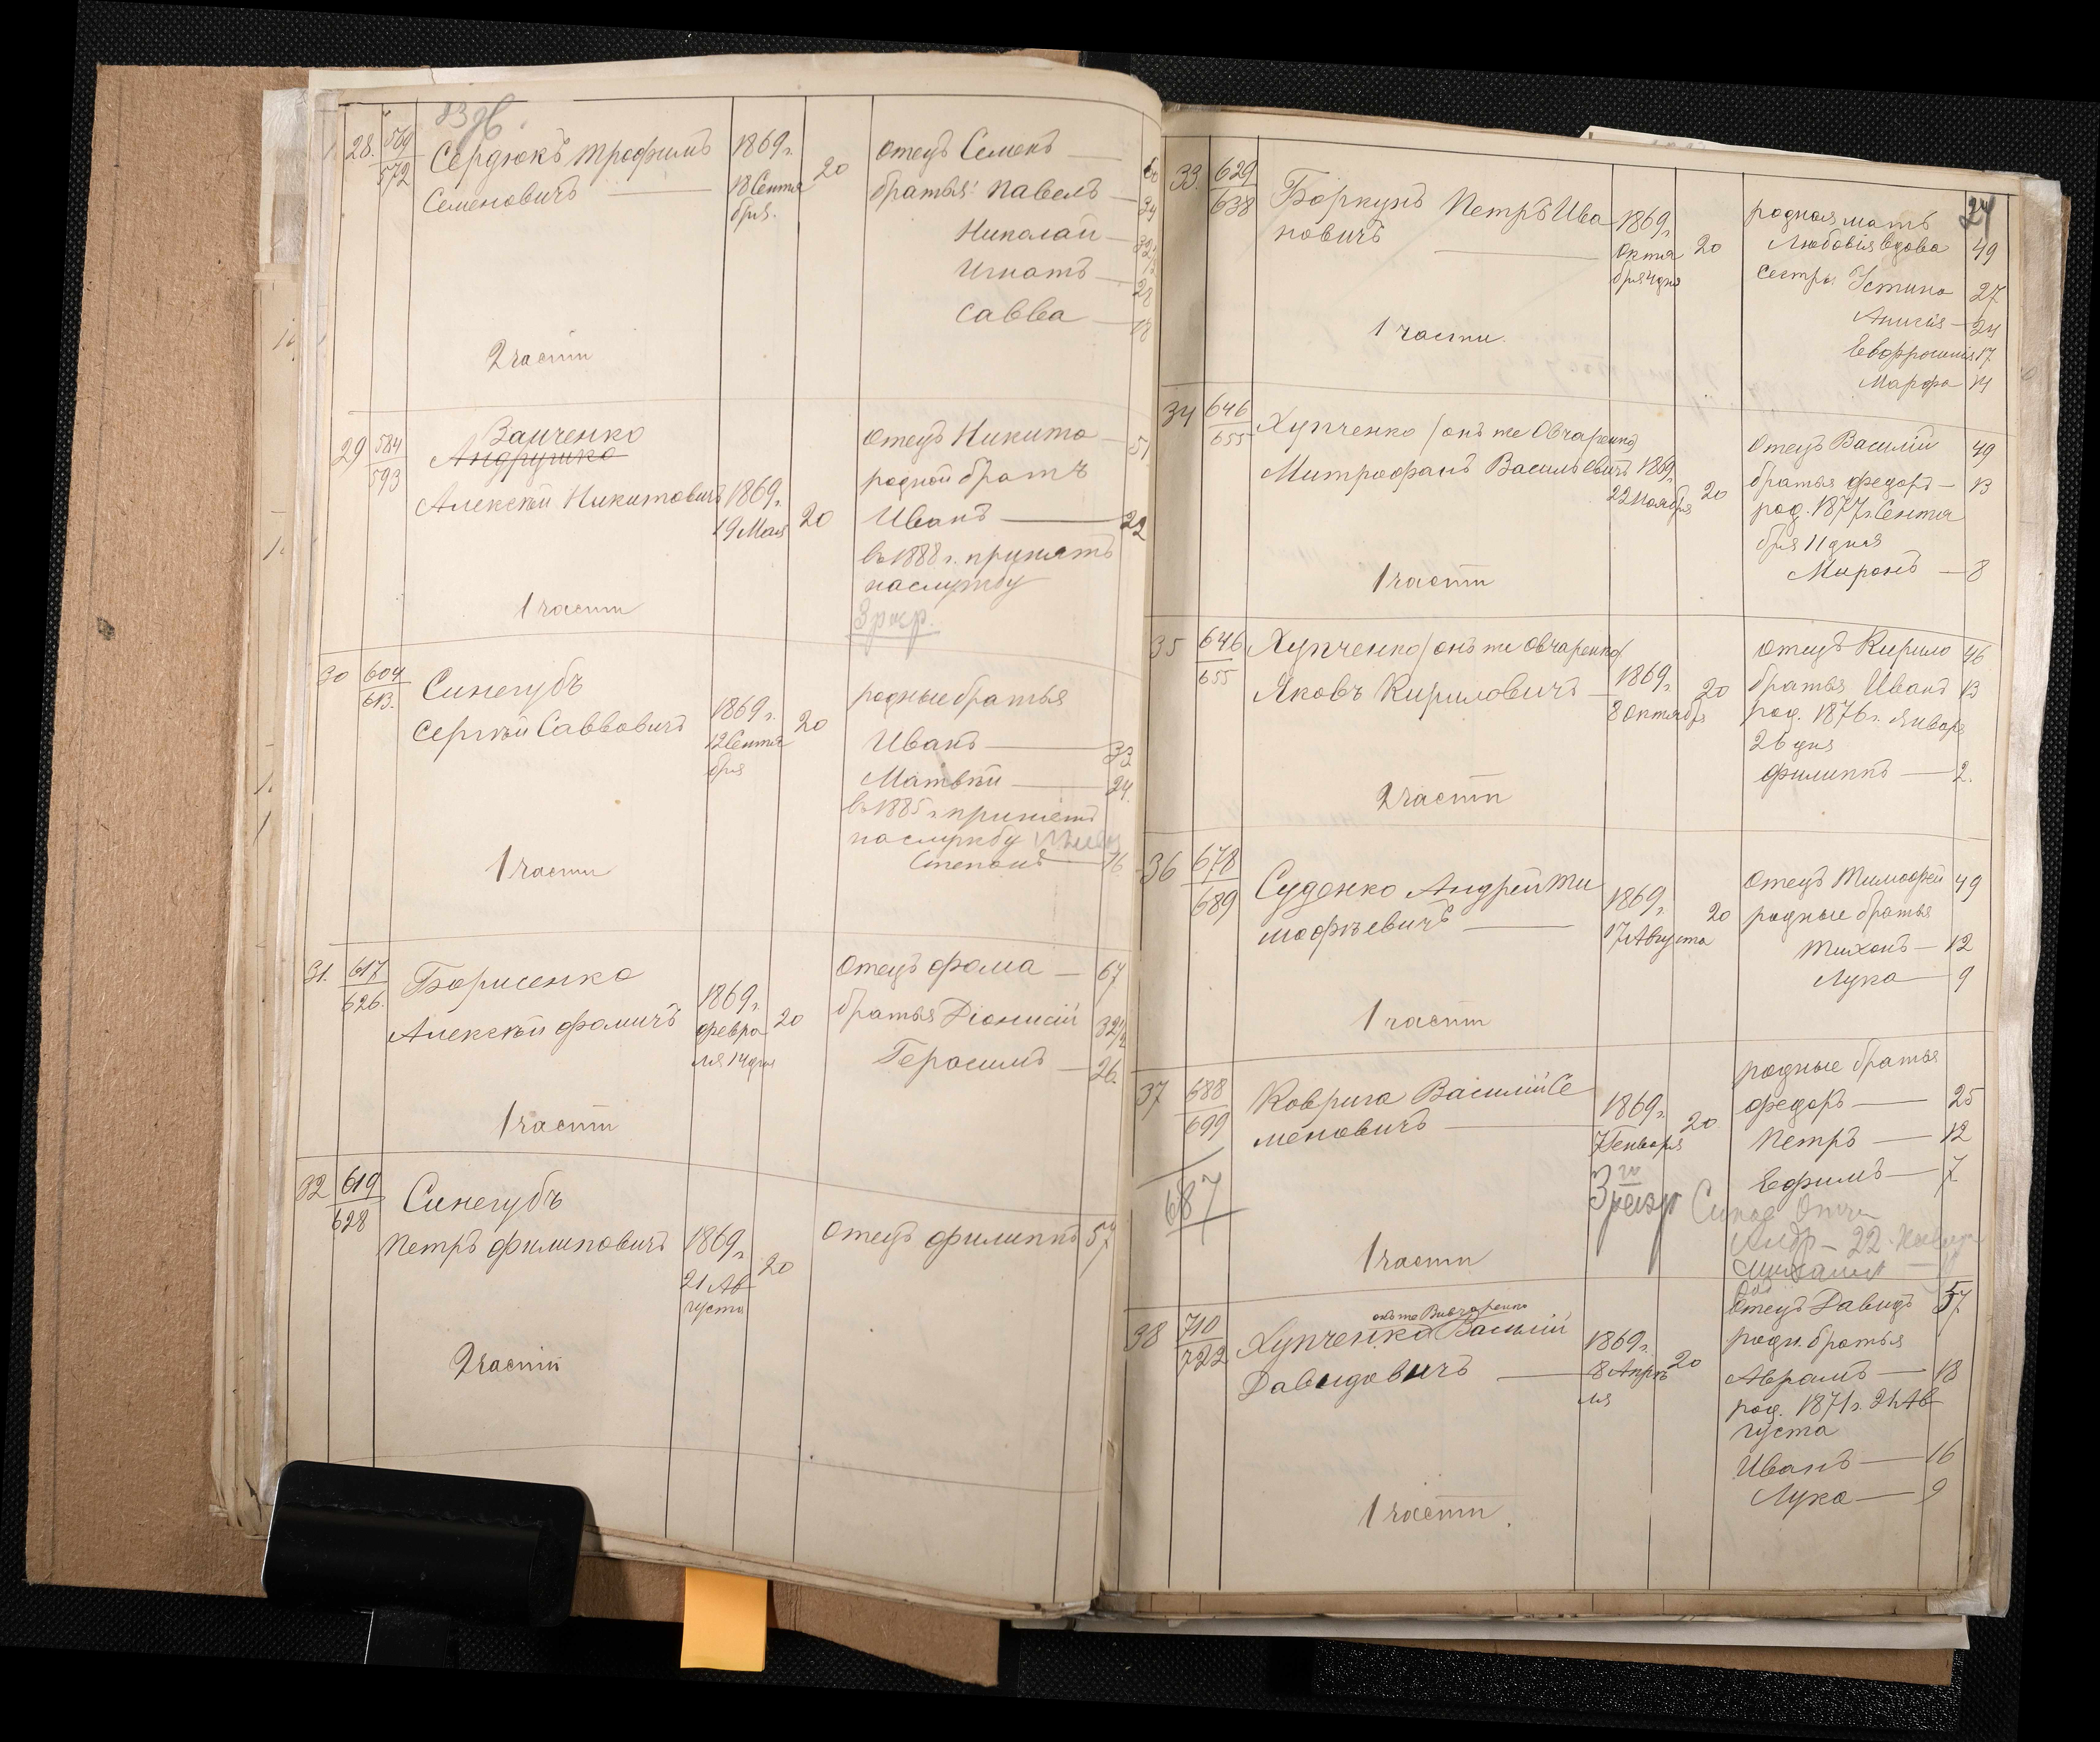 28. 569 Сердюкъ Трофимъ 1869 г. 20 Отецъ Семенъ — 60
572 Семеновичъ — 18 Сентя братья: Павелъ — 34
бря. Николай —
Игнатъ — 28
Савва — 18
2 части
29 584 Заиченко Отецъ Никита — 51
593 Андрушко родной братъ
Алексѣй Никитовичъ 1869 г. 20 Иванъ — 22
19 Мая въ 1888 г. принятъ
на службу
1 части 3 разр.
30 604 Синегубъ родные братья
613. Сергѣй Саввовичъ 1869 г. 20 Иванъ — 33
12 Сентя Матвѣй — 24.
бря въ 1885 г. принятъ
на службу
1 части Степанъ — 16
31. 617 Борисенко Отецъ Фома — 67
626. Алексѣй Фомичъ 1869 г. 20 братья Діонисій 32 1/2
Февра Герасимъ — 26.
ля 14 дня
1 части
32 619 Синегубъ
628 Петръ Филиповичъ 1869 г. 20 Отецъ Филиппъ 57
21 Ав
густа
2 части
24
33. 629 Боркунъ Петръ Ива 1869 г. 20 родная мать
638 новичъ — Октя Любовія вдова 49
бря 4 дня сестры Устина 27
Анисія — 24
1 части. Евфросинія 17
Марфа 14
34 646 Хупченко /онъ же Овчаренко/ Отецъ Василій 49
655 Митрофанъ Васильевичъ 1869 г. 20 братья Федоръ — 13
22 Ноября род. 1877 г. Сентя
бря 11 дня
1 части Миронъ — 8
35 646 Хупченко /онъ же Овчаренко/ Отецъ Кирило 46
655 Яковъ Кириловичъ — 1869 г. 20 братья Иванъ 13
8 Октября род. 1876 г. Января
26 дня
2 части Филиппъ — 2.
36 678 Суденко Андрей Ти 1869 г. 20 Отецъ Тимофей 49
689 мофѣевичъ — 17 Августа родные братья
Тихонъ — 12
Лука — 9
1 части
37 688 Коврига Василій Се 1869 г. 20 родные братья
699 меновичъ — 7 Генваря Федоръ — 25
Петръ — 12
687 3 разр Ефимъ — 7
1 части
онъ же Вивчаренко
38 710 Хупченко Василій 1869 г. 20 Отецъ Давидъ 57
722 Давидовичъ — 8 Апрѣ родн. братья
ля Аврамъ — 18
род. 1871 г. 21 Ав
густа
Иванъ — 16
Лука — 9
1 части.